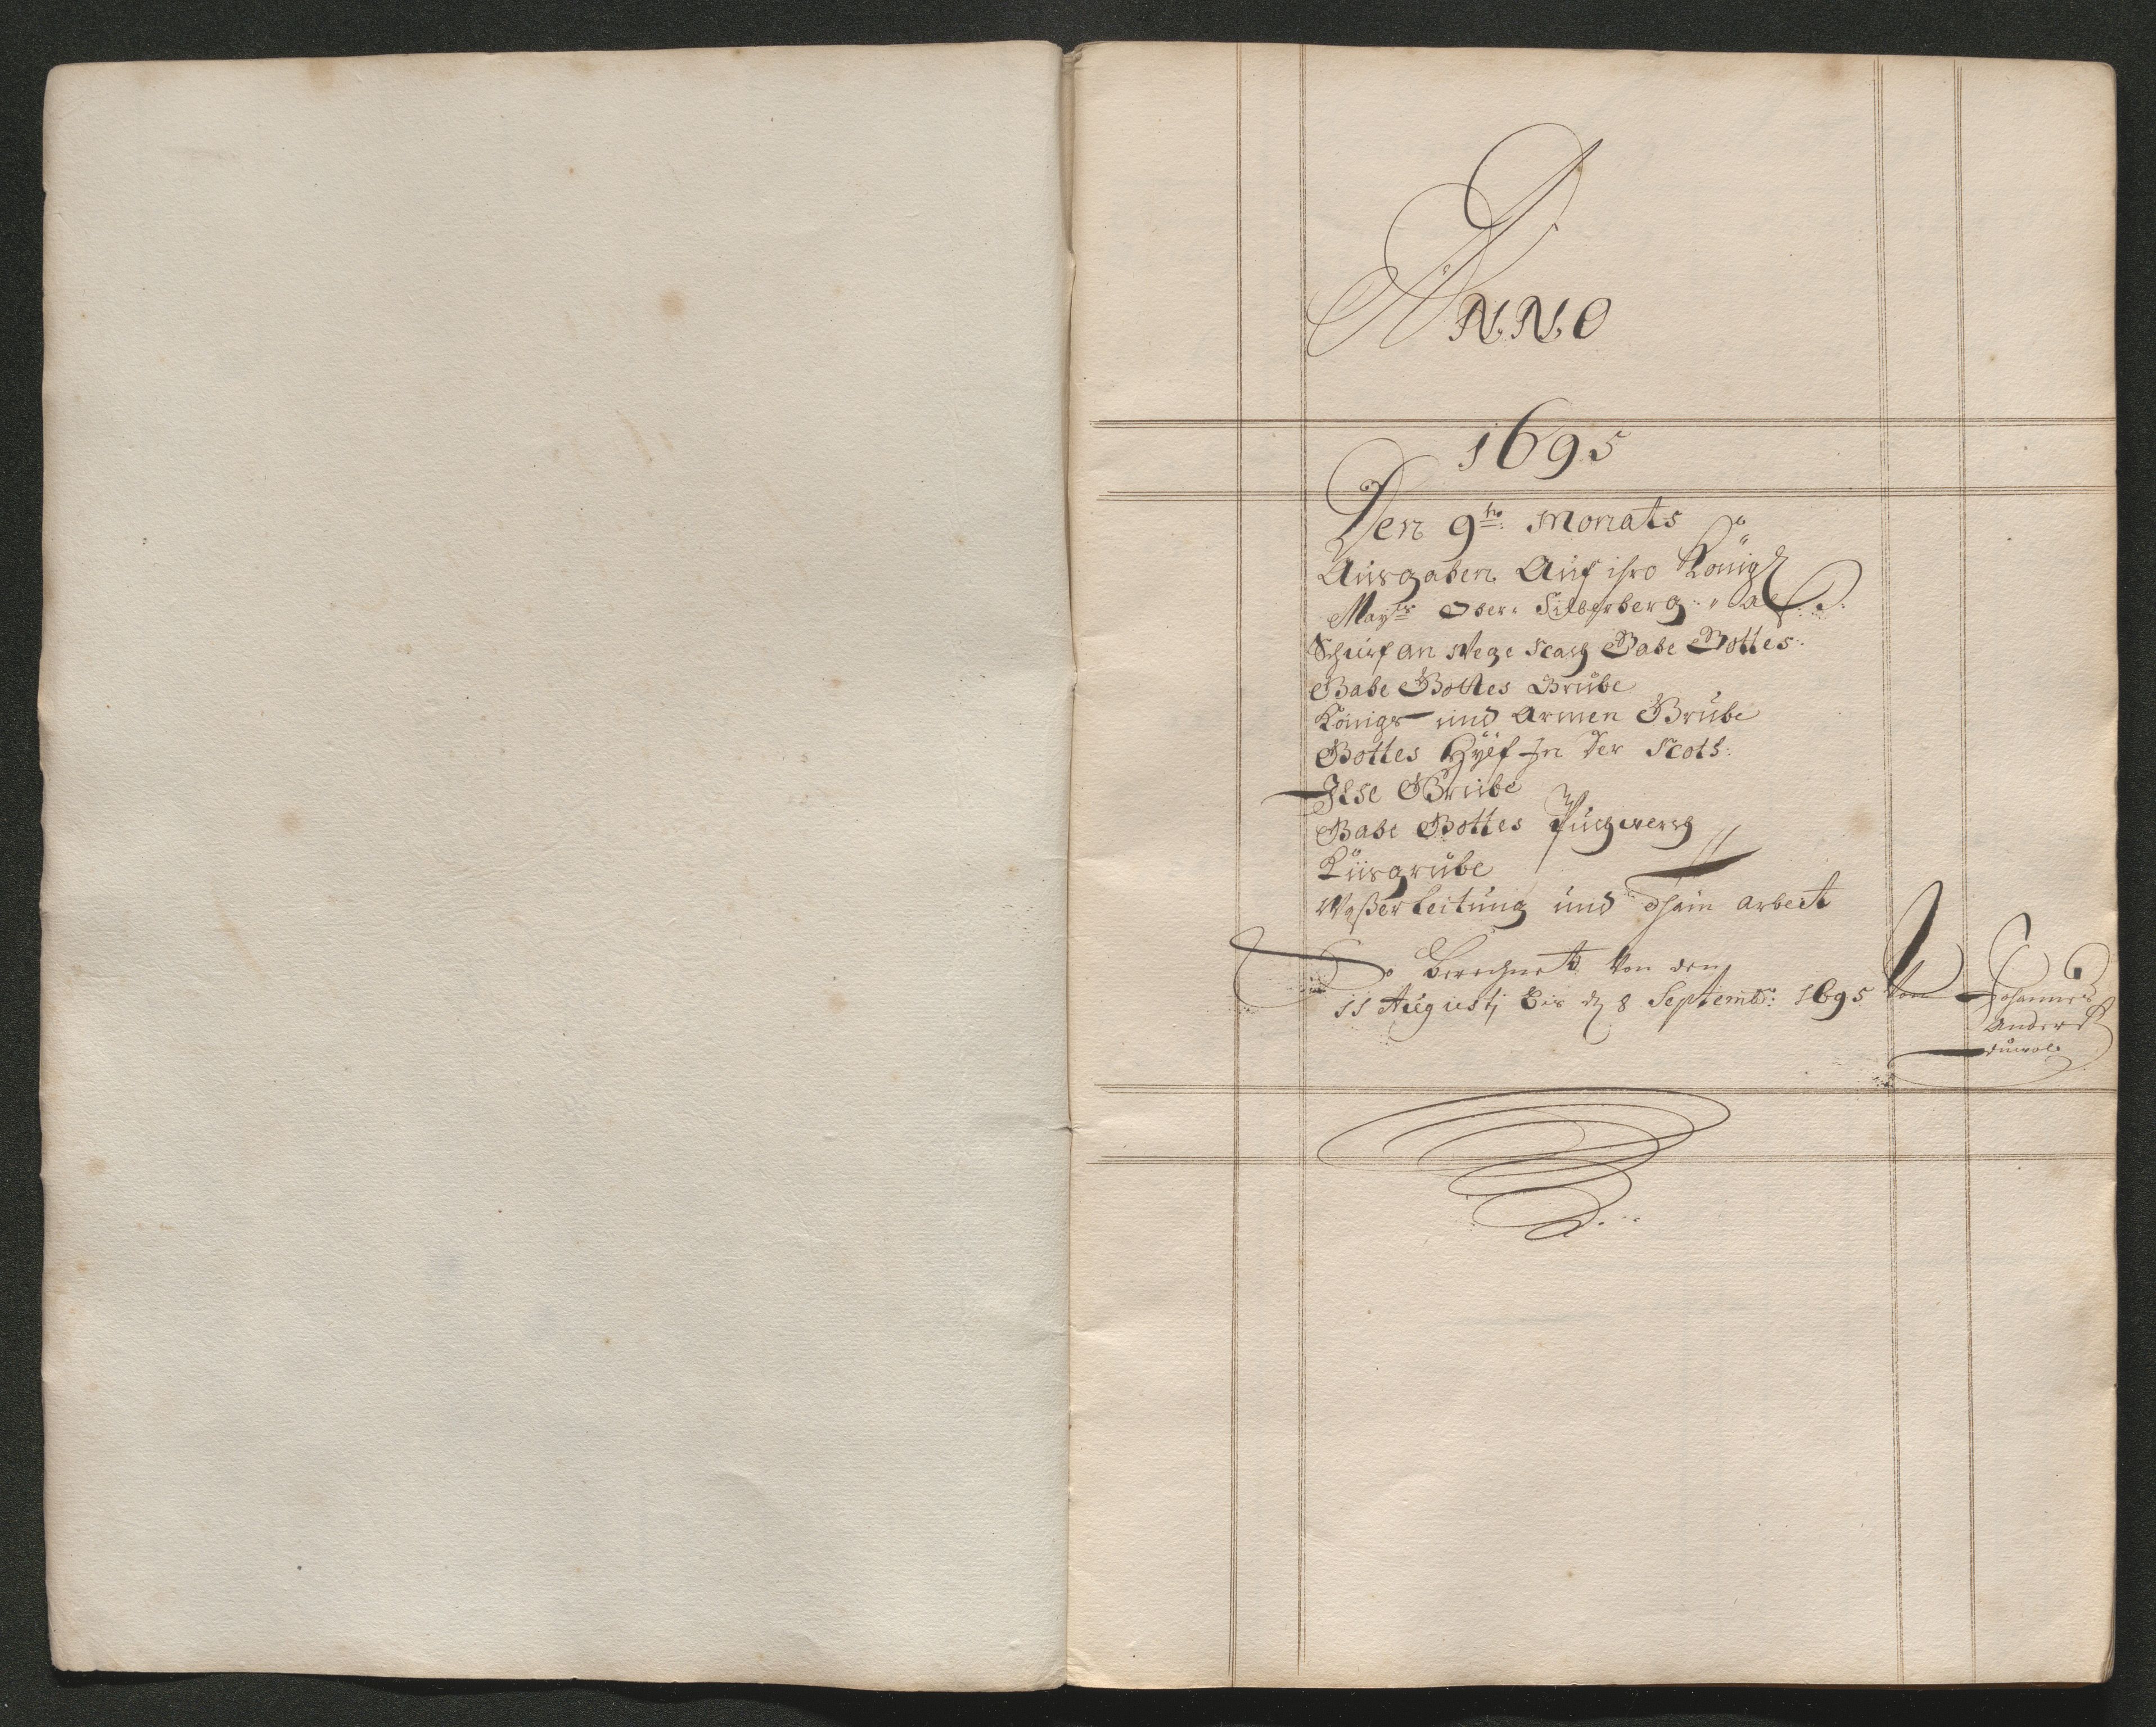 ANNO
1695
Den 9te: Monats
Ausgaben Auf ihro König
Mayts Ober Silberberg als
Schürf an Wege nach Gabe Gottes:
Gabe Gottes Grube
Königs und Armen Grube
Gottes Hyëf In der Noth:
Ilse Grube
Gabe Gottes Puchwerch
Küsgrube
Waßerleitung und Tham arbeit
Berechnet Von den
11 Augusti Bis d 8 Septemb: 1695 Von Johannes
Anders